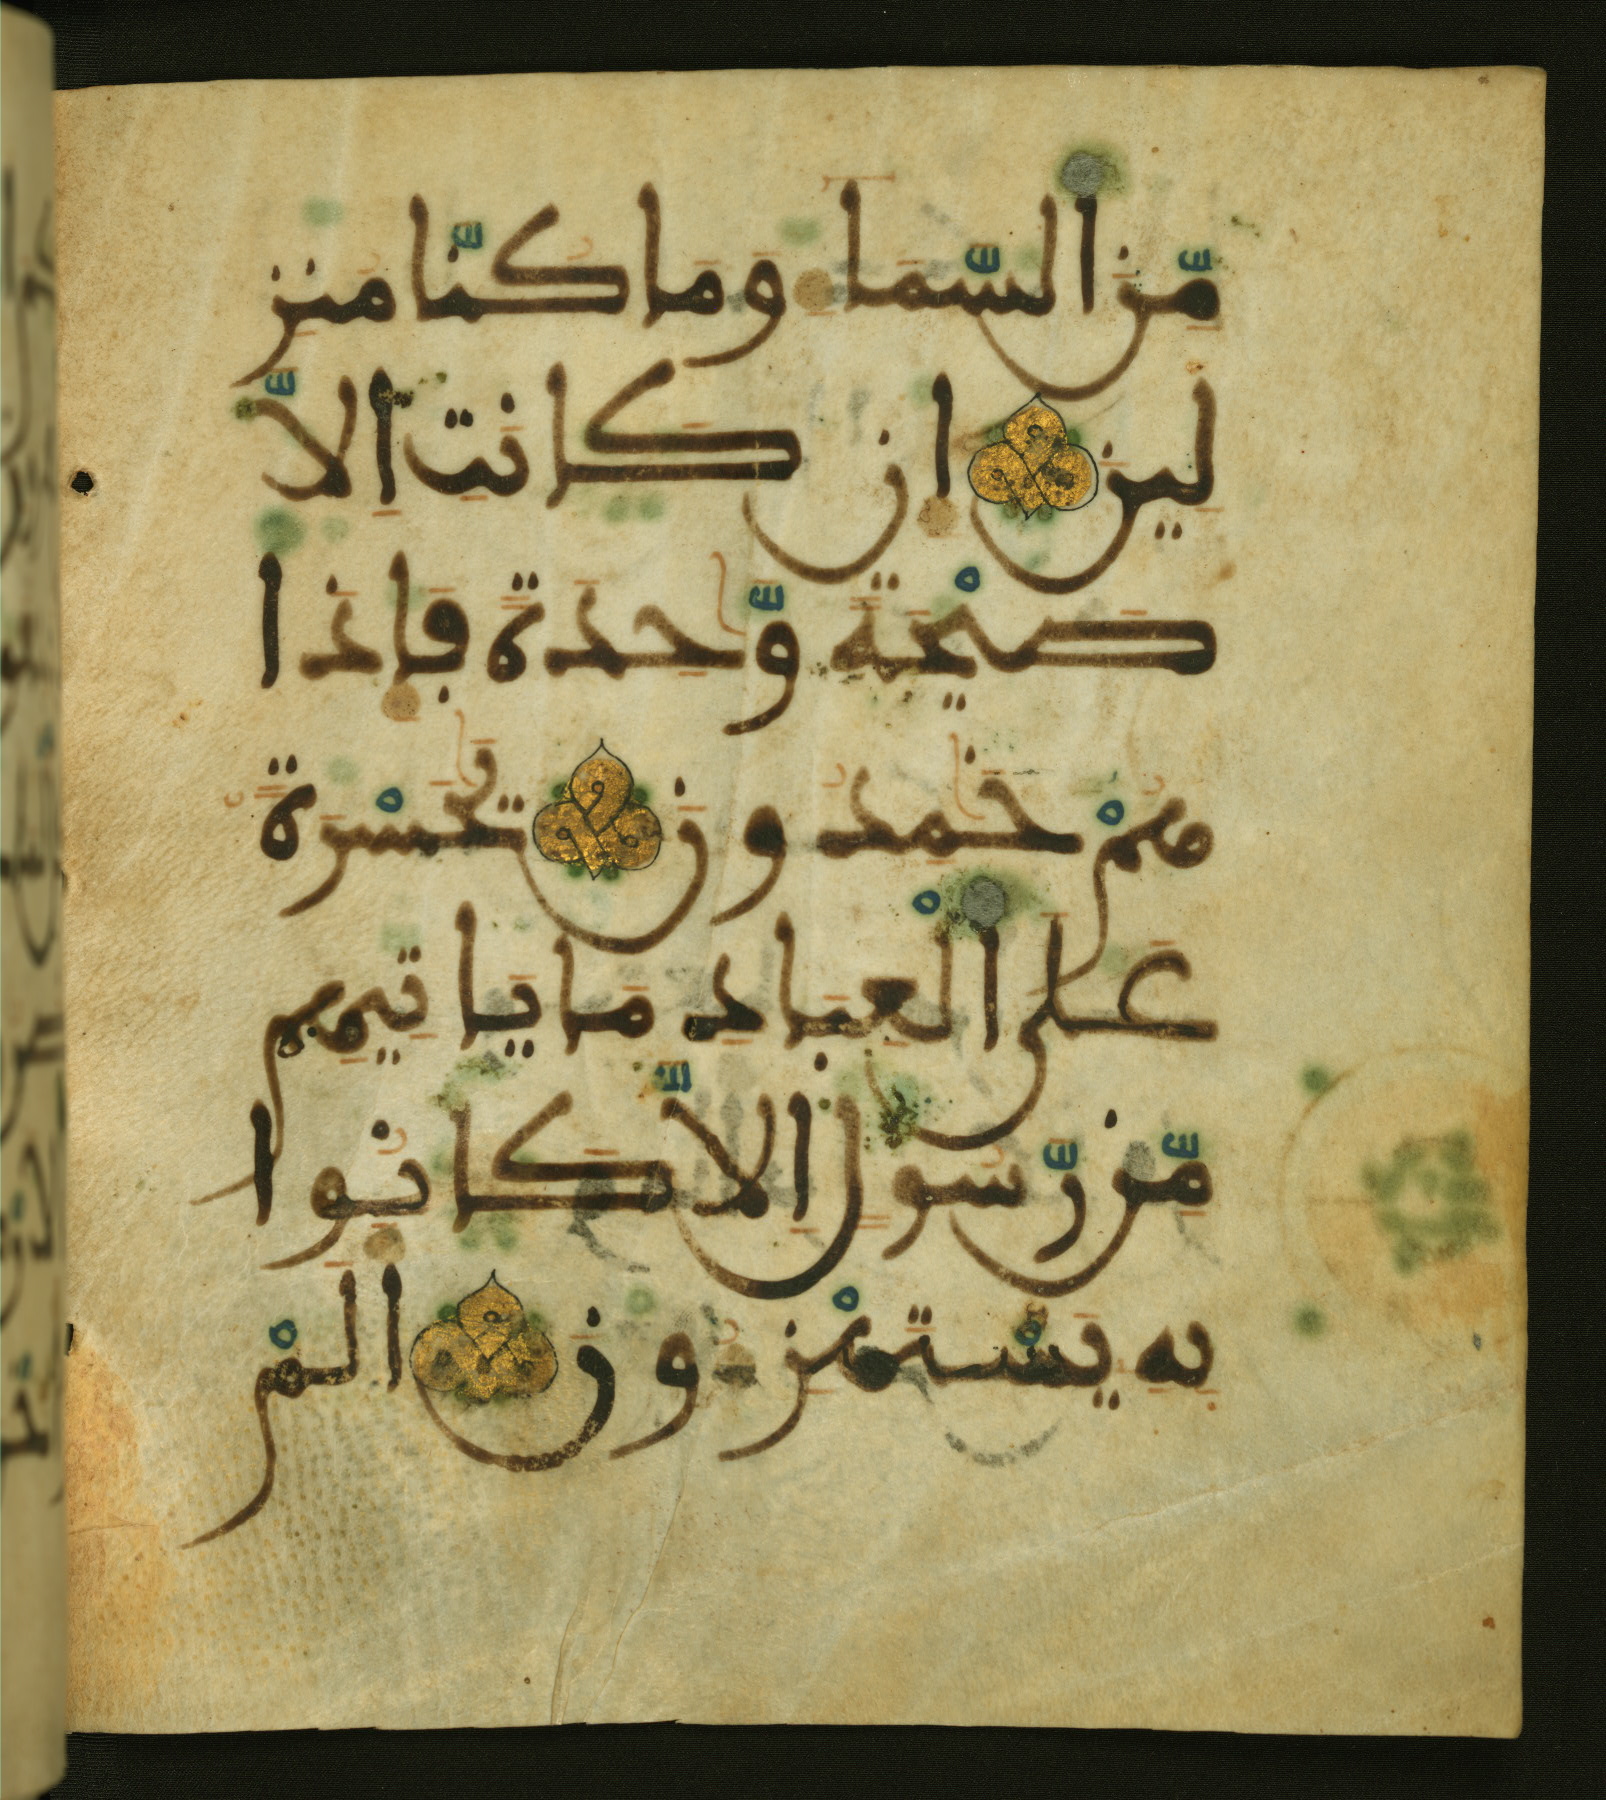 مِّنَ اَلسَّمَآءِ وَمَا كُنَّا مُنزِ
لِينَ اِن كَانَتِ اِلَّا
صَيْحَةً وَّٰحِدَةً فَإِذَا
هُمْ خَٰمِدُونَ يَٰحَسْرَةً
عَلَى اَلْعِبَادِ مَا يَاتِيهِم
مِّن رَّسُولٍ اِلَّا كَانُواْ
بِهِ يَسْتَهْزِءُونَ أَلَمْ